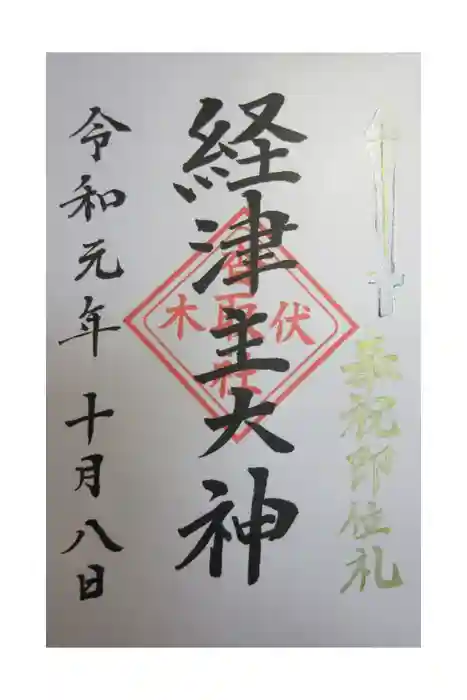 祝即位礼
経津主大神
香取社
伏木
令和元年 十月八日